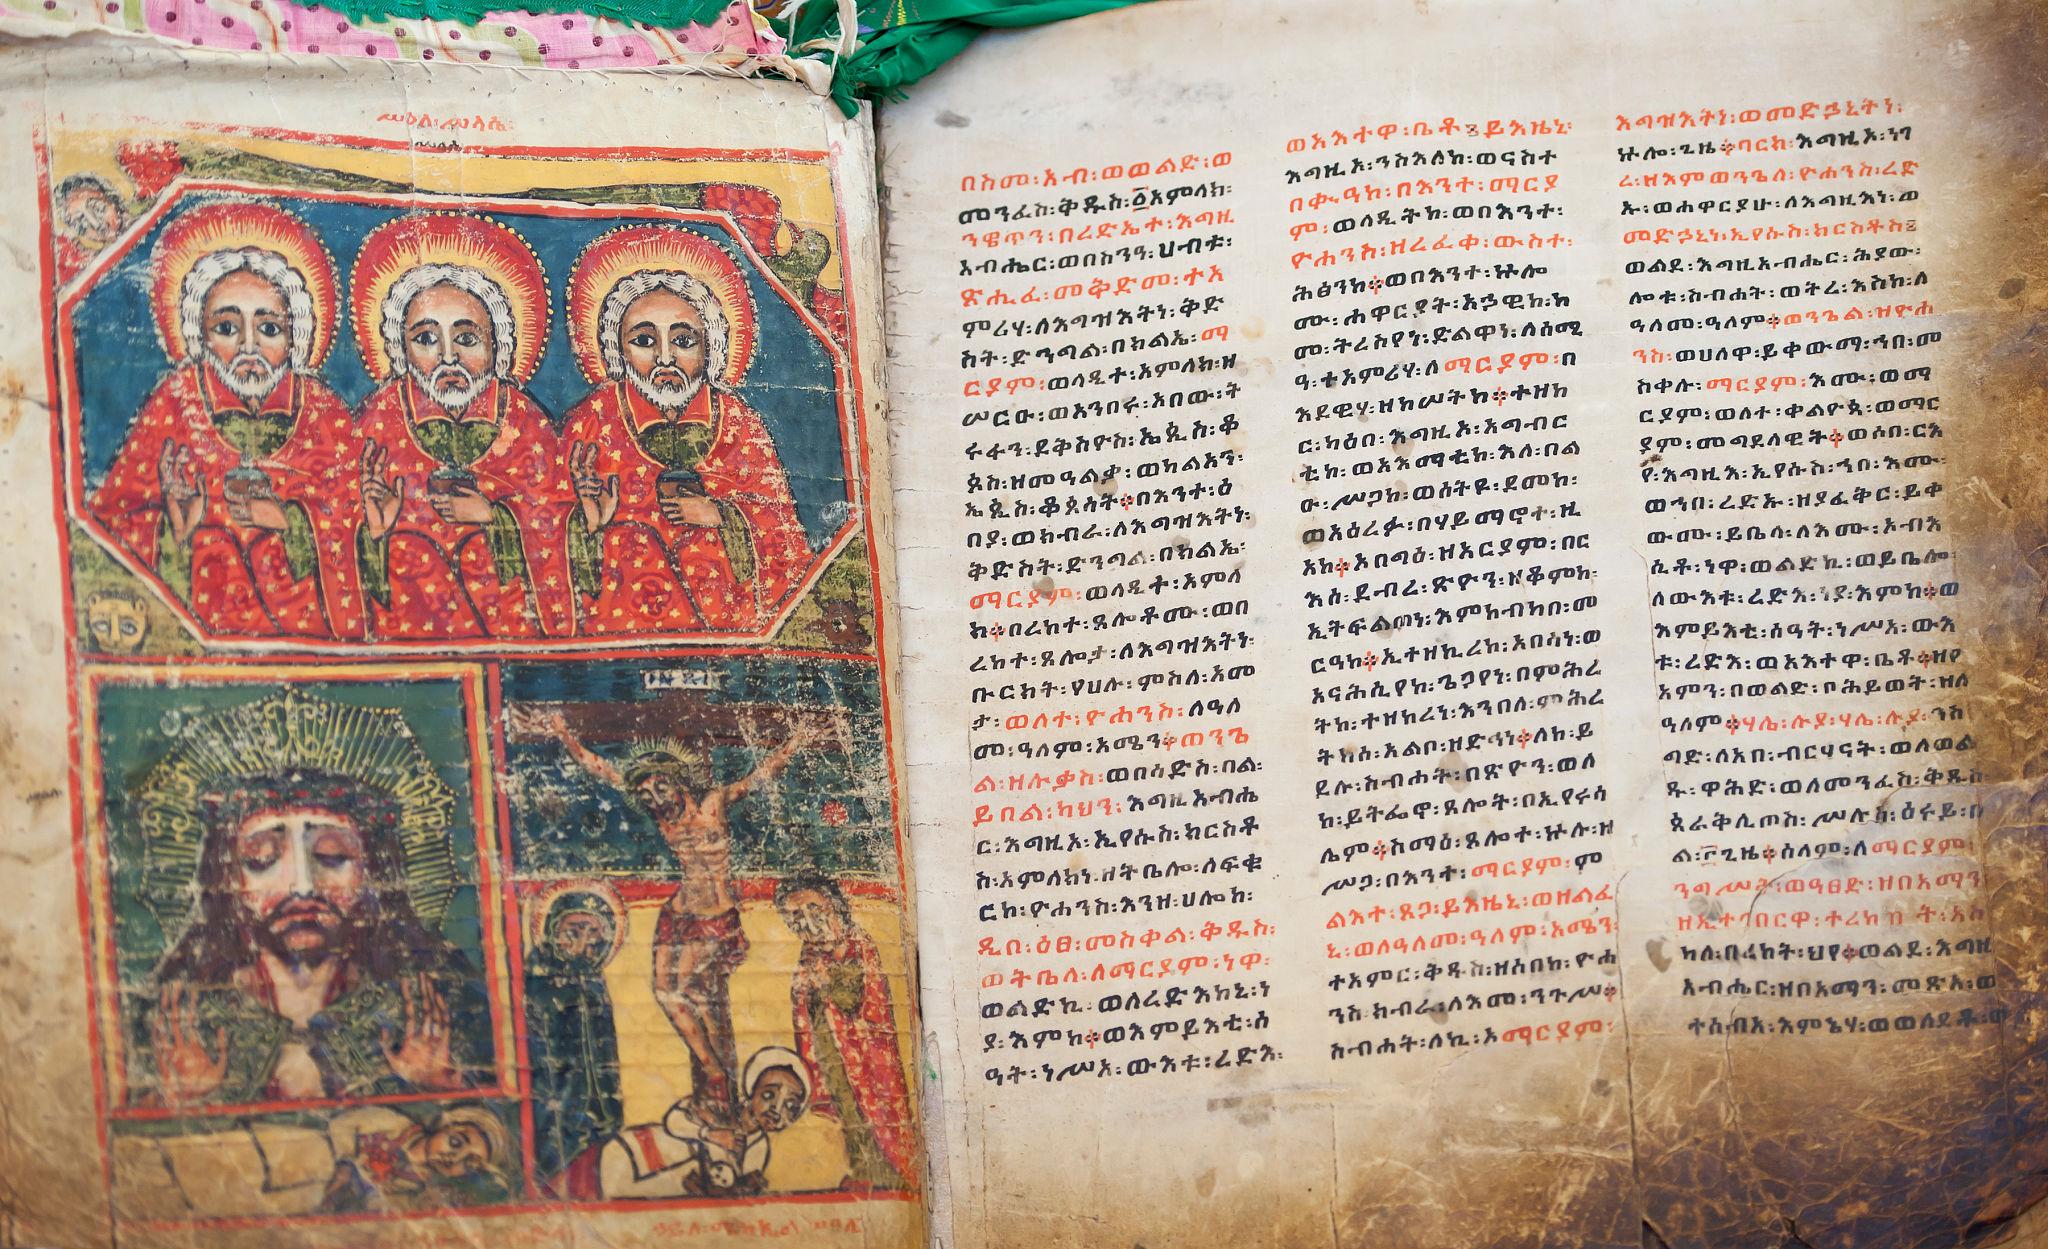 ሥዕለ፡ሥላሴ፡
በስመ፡አብ፡ወወልድ፡ወ
መንፈስ፡ቅዱስ፡፩አምላክ፡
ንዌጥን፡በረድኤተ፡እግዚ
አብሔር፡ወበስንዓ፡ሀብቱ፡
ጽሒፈ፡መቅድመ፡ተአ
ምሪሃ፡ለእግዝእትነ፡ቅድ
ስት፡ድንግል፡በክልኤ፡ማ
ርያም፡ወላዲተ፡አምላክ፡ዘ
ሠርዑ፡ወአንበሩ፡አበው፡ት
ሩፋን፡ደቅስዮስ፡ኤጲስ፡ቆ
ጶስ፡ዘመዓልቃ፡ወካልአን፡
ኤጲስ፡ቆጶሳት፨በእንተ፡ዕ
በያ፡ወክብራ፡ለእግዝእትነ፡
ቅድስት፡ድንግል፡በክልኤ፡
ማርያም፡ወላዲተ፡አምላ
ክ፨በረከተ፡ጸሎቶሙ፡ወበ
ረከተ፡ጸሎታ፡ለእግዝእትነ፡
ቡርክት፡የሀሉ፡ምስለ፡አመ
ታ፡ወለተ፡ዮሐንስ፡ለዓለ
መ፡ዓለም፡አሜን፨ወንጌ
ል፡ዘሉቃስ፡ወበሳድስ፡በል፡
ይበል፡ካህን፡እግዚአብሔ
ር፡እግዚእ፡ኢየሱስ፡ክርስቶ
ስ፡አምላክነ፡ዘትቤሎ፡ለፍቁ
ርከ፡ዮሐንስ፡እንዘ፡ሀሎከ፡
ዲበ፡ዕፀ፡መስቀል፡ቅዱስ፡
ወትቤላ፡ለማርያም፡ነዋ፡
ወልድኪ፡ወለረድእከኒ፡ነ
ያ፡እምከ፨ወእምይእቲ፡ሰ
ዓት፡ነሥአ፡ውእቱ፡ረድእ፡
ወአእተዋ፡ቤቶ፤ይእዜኒ፡
እግዚኦ፡ንስእለከ፡ወናስተ
በቍዓከ፡በእንተ፡ማርያ
ም፡ወላዲትከ፡ወበእንተ፡
ዮሐንስ፡ዘረፈቀ፡ውስተ፡
ሕፅንከ፨ወበእንተ፡ኵሎ
ሙ፡ሐዋርያት፡አኃዊከ፡ከ
መ፡ትረስየነ፡ድልዋነ፡ለሰሚ
ዓ፡ተአምሪሃ፡ለማርያም፡በ
እደዊሃ፡ዘከሠትከ፨ተዘከ
ር፡ካዕበ፡እግዚኦ፡አግብር
ቲከ፡ወአእማቲከ፡እለ፡በል
ዑ፡ሥጋከ፡ወሰትዩ፡ደመከ፡
ወአዕረፉ፡በሃይማኖተ፡ዚ
አከ፨አበግዕ፡ዘአርያም፡በር
እሰ፡ደብረ፡ጽዮን፡ዘቆምከ፡
ኢትፍልጠነ፡እምከብካበ፡መ
ርዓከ፨ኢተዘኪረከ፡አበሳነ፡ወ
አናሕሲየከ፡ጌጋየነ፡በምሕረ
ትከ፡ተዘከረነ፡እንበለ፡ምሕረ
ትከሰ፡አልቦ፡ዘድኅነ፨ለከ፡ይ
ደሉ፡ስብሐት፡በጽዮን፡ወለ
ከ፡ይትፌዋ፡ጸሎት፡በኢየሩሳ
ሌም፨ስማዕ፡ጸሎተ፡ኵሉ፡ዘ
ሥጋ፡በእንተ፡ማርያም፡ም
ልእተ፡ጸጋ፡ይእዜኒ፡ወዘልፈ
ኒ፡ወለዓለመ፡ዓለም፡አሜን፡
ተአምር፡ቅዱስ፡ዘሰበከ፡ዮሐ
ንስ፡ክብራ፡ለእመ፡ንጉሥ፨
ስብሐት፡ለኪ፡ኦማርያም፡
እግዝእትነ፡ወመድኃኒትነ፡
ኵሎ፡ጊዜ፨ባርክ፡እግዚኦ፡ነገ
ረ፡ዘእምወንጌለ፡ዮሐንስ፡ረድ
ኡ፡ወሐዋርያሁ፡ለእግዚእነ፡ወ
መድኃኒነ፡ኢየሱስ፡ክርስቶስ፤
ወልደ፡እግዚአብሔር፡ሕያው፡
ሎቱ፡ስብሐት፡ወትረ፡እስከ፡ለ
ዓለመ፡ዓለም፨ወንጌል፡ዘዮሐ
ንስ፡ወሀለዋ፡ይቀውማ፡ኀበ፡መ
ስቀሉ፡ማርያም፡እሙ፡ወማ
ርያም፡ወለተ፡ቀልዮጳ፡ወማር
ያም፡መግደላዊት፨ወሶበ፡ርእ
የ፡እግዚእ፡ኢየሱስ፡ኀበ፡እሙ፡
ወኀበ፡ረድኡ፡ዘያፈቅር፡ይቀ
ውሙ፡ይቤላ፡ለእሙ፡አብእ
ሲቶ፡ነዋ፡ወልድኪ፡ወይቤሎ፡
ለውእቱ፡ረድእ፡ነያ፡እምከ፨ወ
እምይእቲ፡ሰዓት፡ነሥአ፡ውእ
ቱ፡ረድእ፡ወአእተዋ፡ቤቶ፨ዘየ
አምን፡በወልድ፡ቦ፡ሕይወት፡ዘለ
ዓለም፨ሃሌ፡ሉያ፡ሃሌ፡ሉያ፡ንስ
ግድ፡ለአብ፡ብርሃናት፡ወለወል
ዱ፡ዋሕድ፡ወለመንፈስ፡ቅዱስ፡
ጰራቅሊጦስ፡ሥሉስ፡ዕሩይ፡በ
ል፡፫ጊዜ፨ሰላም፡ለማርያም፡
ንግሥት፡ወዓፀድ፡ዘበአማን፡
በረከት፡ህየ፨ወልደ፡እግዚ
አብሔር፡ዘበአማን፡መጽአ፡ወ
ተሰብአ፡እምኔሃ፡